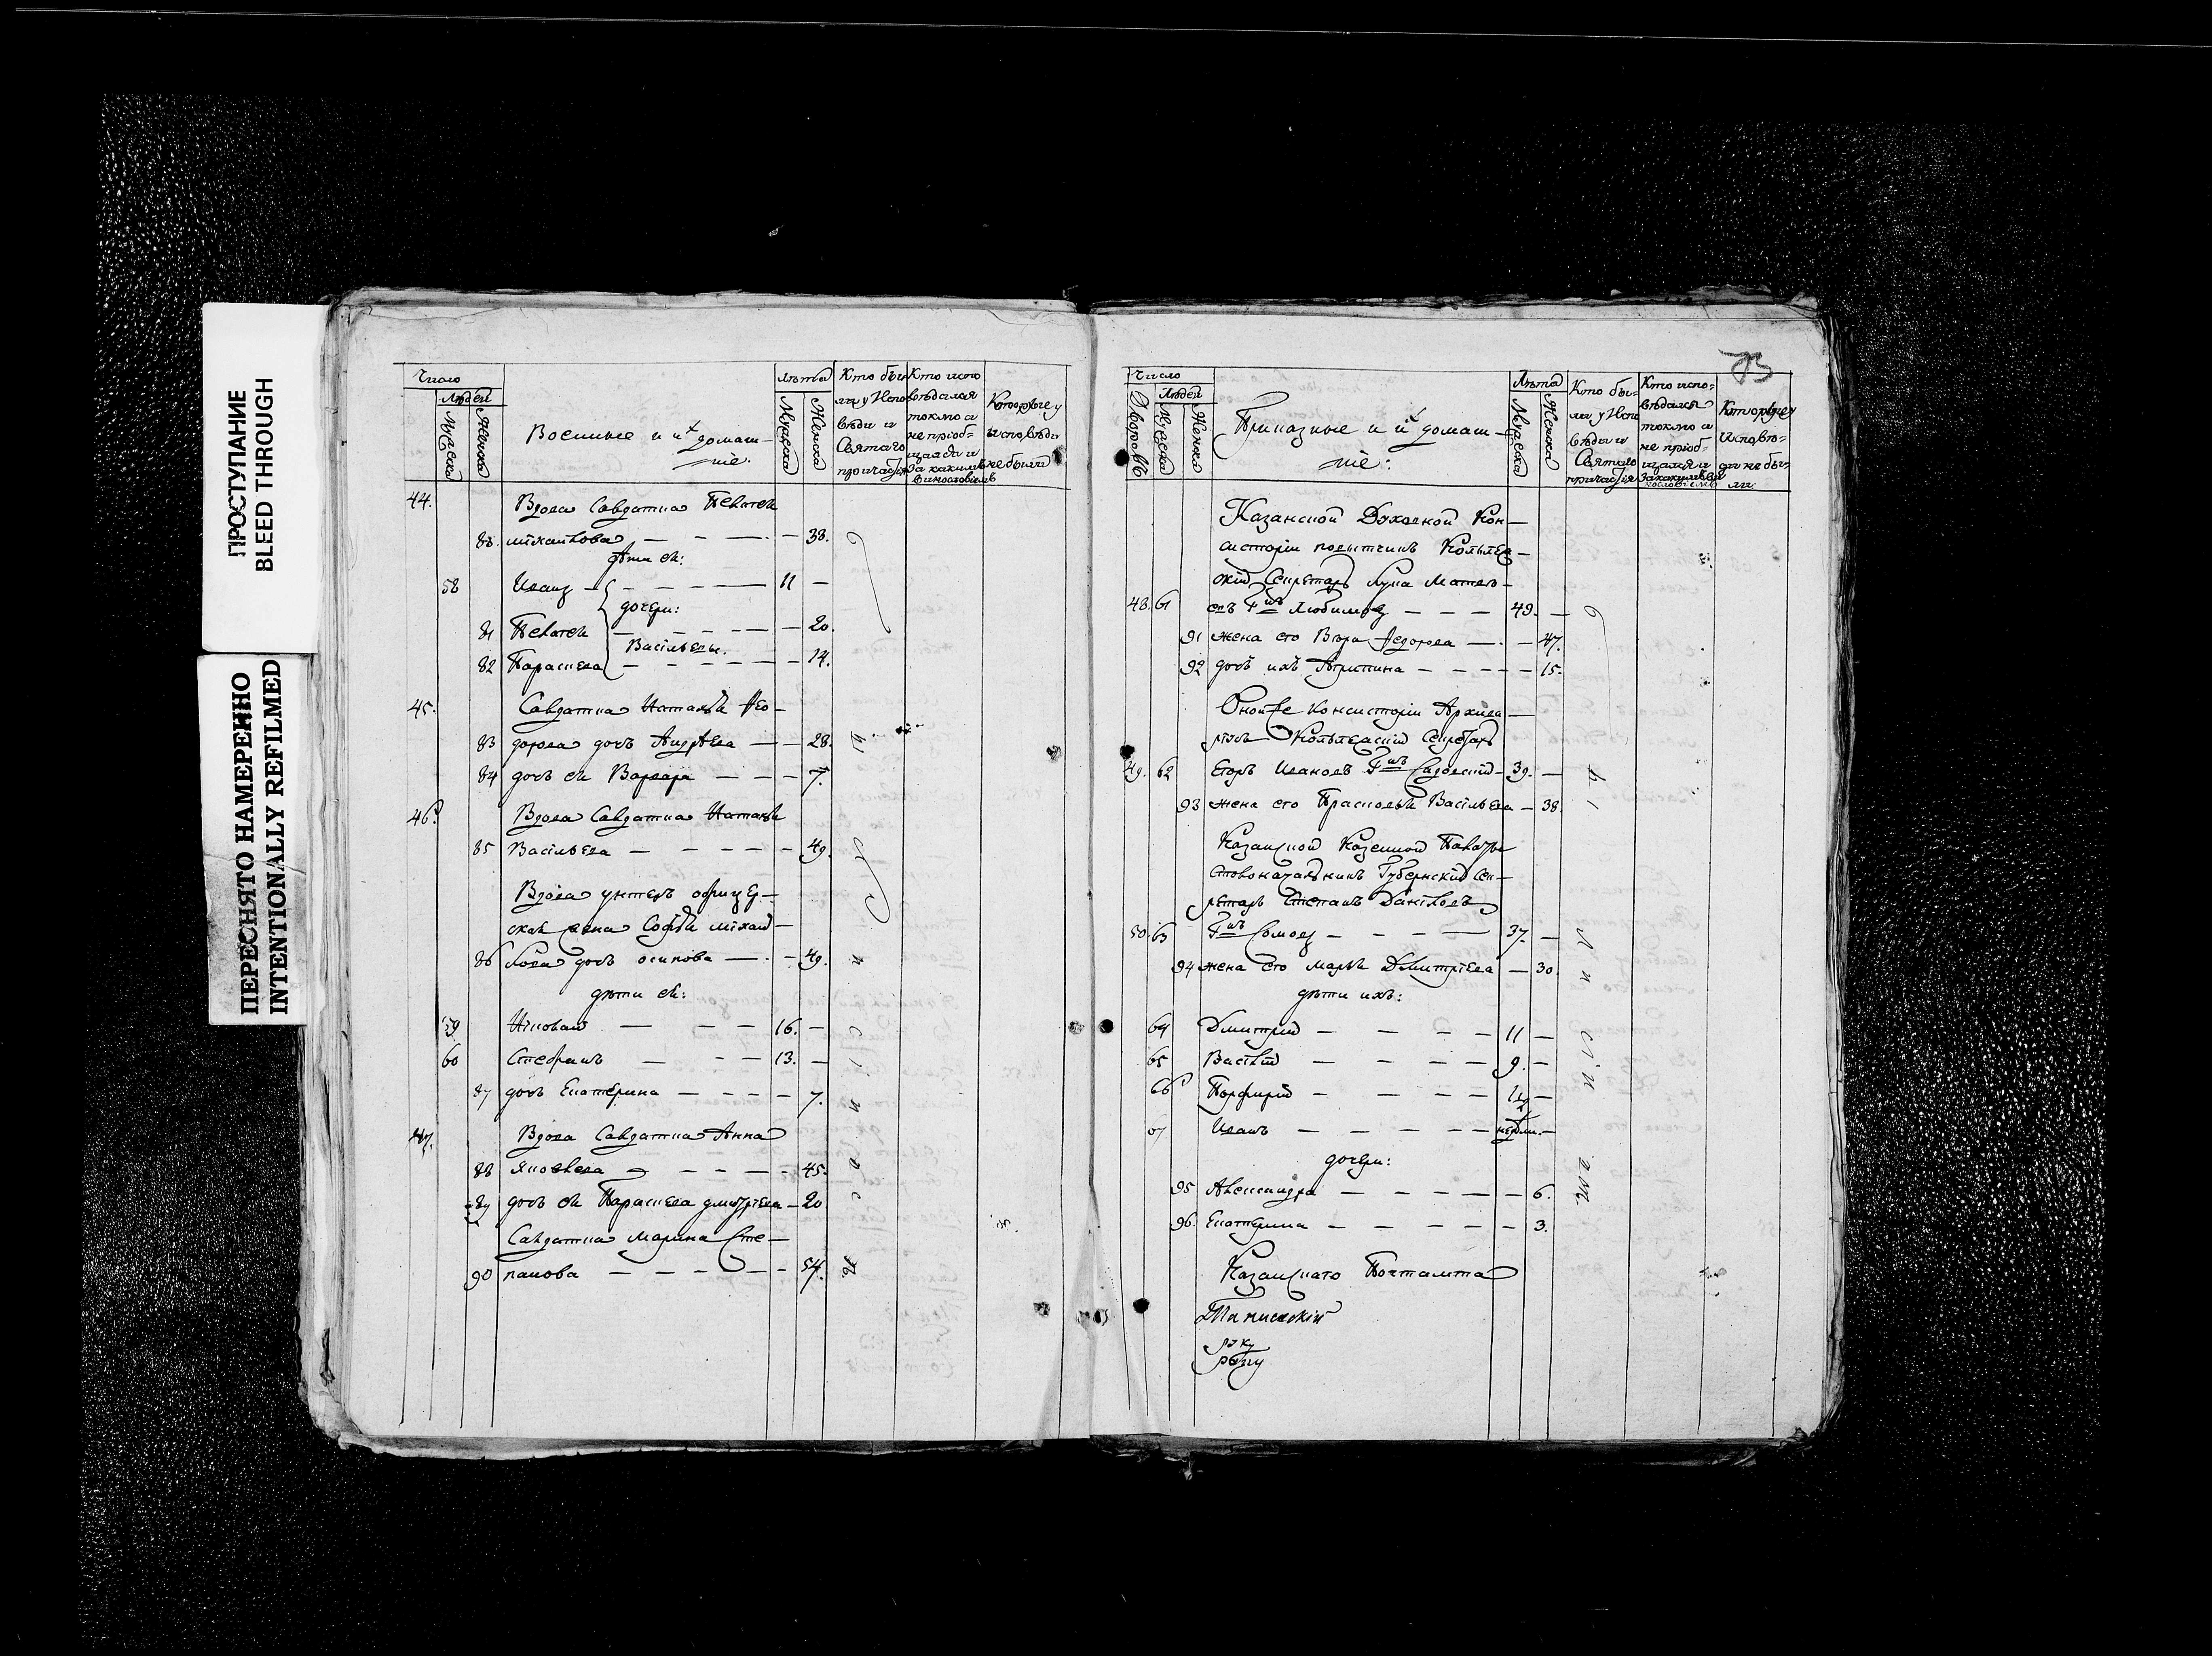 ПРОСТУПАНИЕ
BLEED THROUGH
ПЕРЕСНЯТО НАМЕРЕННО
INTENTIONALLY REFILMED
Число
Людей
Мужеска
Женска
Военные и их домаш-
ніе.
Лѣта
Мужеска
Женска
Кто бы-
ли у Испо
вѣди и
Святаго
причастія
Кто испо
вѣдался
токмо а
не пріоб-
щался и
за какимъ
винословіемъ
Которые у
исповѣди
не были
44. Вдова Салдатка Пелагея
80. михайлова — — — — 38.
дѣти ея:
58 Иванъ — — — 11 —
дочери:
81 Пелагея — — — 20.
Васильевы.
82 Параскева — — — — 14.
45. Салдатка Наталья Ѳео-
83 дорова дочь Андреева — — 28.
84 дочь ея Варвара — — — 7.
46. Вдова Салдатка Наталья
85 Васильева — — — — 49.
Вдова унтеръ офицер-
ская жена Софья михай-
86 лова дочь осипова — — 49.
дѣти ея:
59 Николай — — — 16. —
60 Стефанъ — — — 13. —
87 дочь Екатерина — — — — 7.
47. Вдова Салдатка Анна
88 Яковлева — — — — 45.
89 дочь ея Параскева дмитріева — 20
Салдатка марина Сте-
90 панова — — — — — 54.
73
Число
Дворовъ
Людей
Мужеска
Женска
Приказные и их домаш-
ніе:
Лѣта
Мужеска
Женска
Кто бы-
ли у Испо
вѣди и
Святаго
причастія
Кто испо-
вѣдался
токмо а
не пріоб-
щался и
за какимъ ви
нословіемъ
Которые у
Исповѣ-
ди не бы-
ли.
Казанской Духовной Кон-
систоріи повытчикъ Коллеж-
скій Секретарь Лука Матве-
48. 61 евъ Г-нъ Любимовъ — — — 49. —
91 жена его Вѣра Ѳедорова — — — 47.
92 дочь ихъ Агрипина — — — — — 15.
Оной же Консисторіи Архива-
ріусъ Коллежскій Секретарь
49. 62 Егоръ Ивановъ Г-нъ Садовскій — 39. —
93 жена его Прасковья Васильева — 38.
Казанской Казенной Палаты
Столоначальникъ Губернскій Сек-
ретарь Степанъ Даніловъ
50. 63 Г-нъ — — — 37. —
94 жена его марья Дмитріева — 30.
дѣти ихъ:
64 Дмитрій — — — — 11 —
65 Василій — — — — 9. —
66 Порфирій — — — —
67 Иванъ — — — — —
дочери:
95 Александра — — — — — 6.
96. Екатерина — — — — — 3.
Казанскаго Почтамта